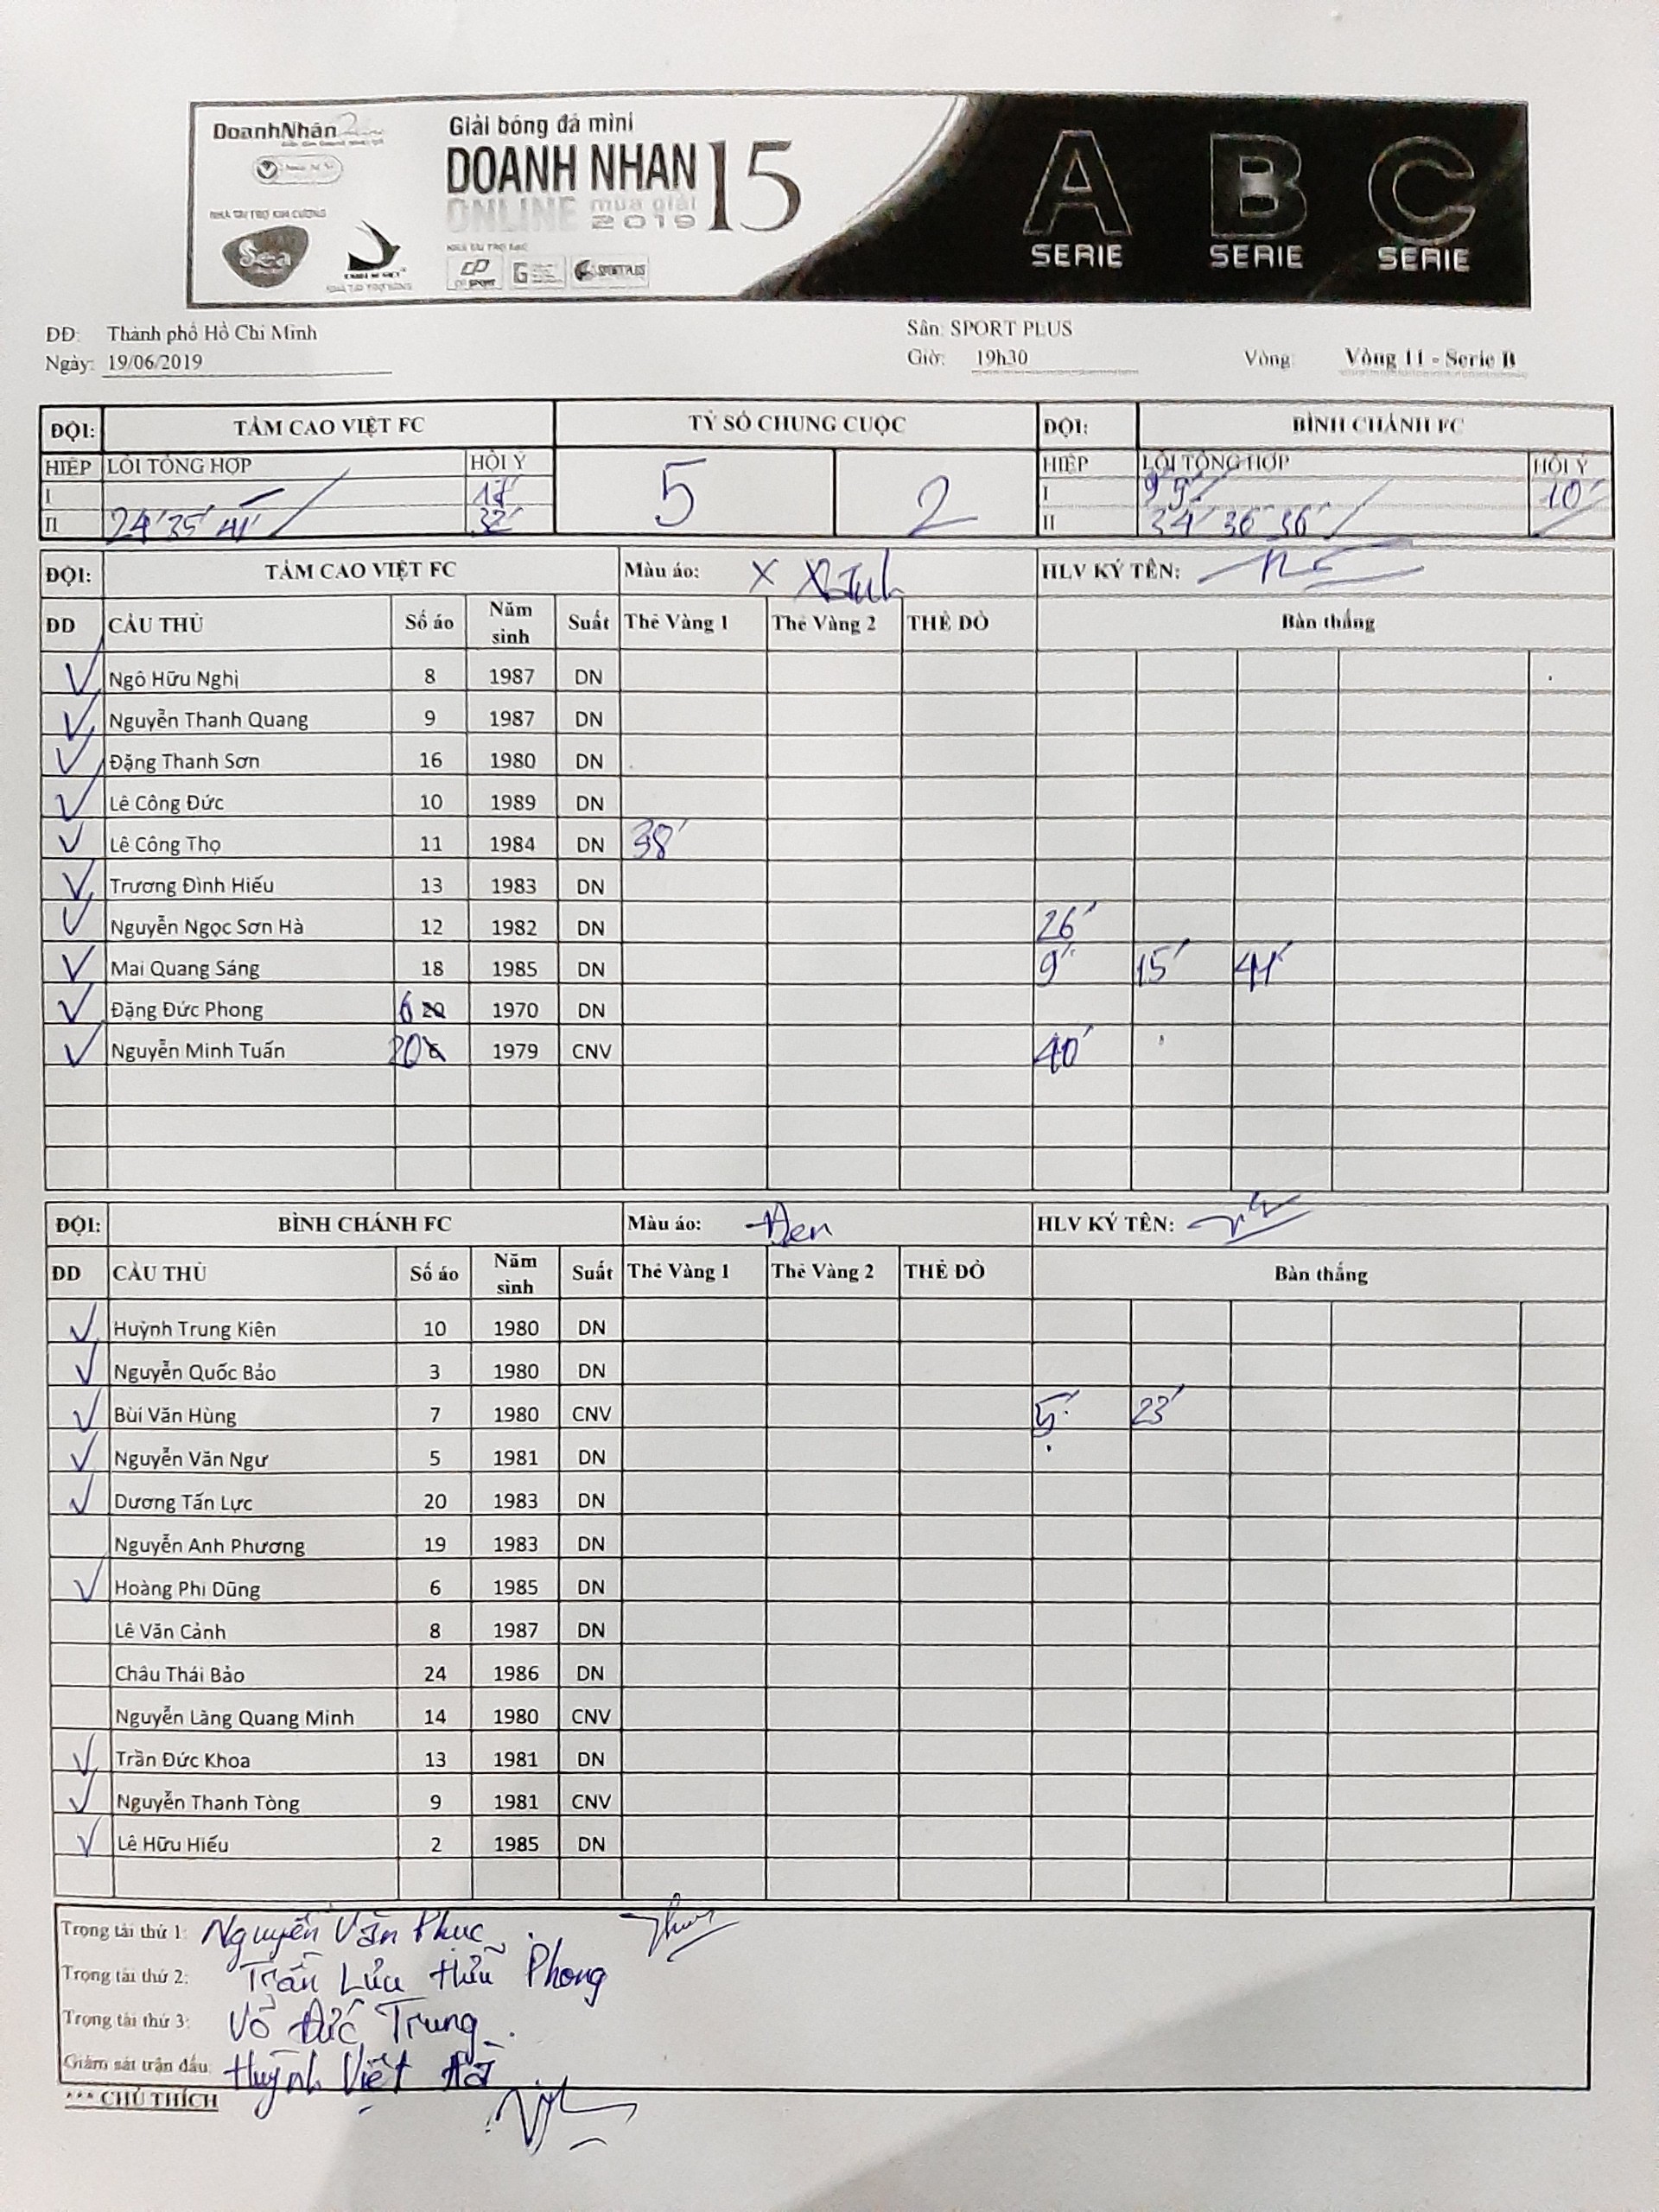 DoanhNhân
Giải bóng đá mini
DOANH NHAN 15
ONLINE mùa giải
2019
NHÀ TÀI TRỢ KIM CƯƠNG
Sea
SPORT PLUS
A SERIE B SERIE C SERIE
ĐĐ: Thành phố Hồ Chí Minh Sân: SPORT PLUS
Ngày: 19/06/2019 Giờ: 19h30 Vòng: Vòng 11 - Serie B
ĐỘI: TẦM CAO VIỆT FC TỶ SỐ CHUNG CUỘC ĐỘI: BÌNH CHÁNH FC
HIỆP LỖI TỔNG HỢP HỘI Ý 5 2 HIỆP LỖI TỔNG HỢP HỘI Ý
I 17' I 9' 9' 10'
II 24' 35' 41' 32' II 34' 36' 36'
ĐỘI: TẦM CAO VIỆT FC Màu áo: HLV KÝ TÊN:
DD CẦU THỦ Số áo Năm sinh Suất Thẻ Vàng 1 Thẻ Vàng 2 THẺ ĐỎ Bàn thắng
Ngô Hữu Nghị 8 1987 DN
Nguyễn Thanh Quang 9 1987 DN
Đặng Thanh Sơn 16 1980 DN
Lê Công Đức 10 1989 DN
Lê Công Thọ 11 1984 DN 38'
Trương Đình Hiếu 13 1983 DN
Nguyễn Ngọc Sơn Hà 12 1982 DN 26'
Mai Quang Sáng 18 1985 DN 9' 15' 41'
Đặng Đức Phong 6 1970 DN
Nguyễn Minh Tuấn 20 1979 CNV 40'
ĐỘI: BÌNH CHÁNH FC Màu áo: Đen HLV KÝ TÊN:
DD CẦU THỦ Số áo Năm sinh Suất Thẻ Vàng 1 Thẻ Vàng 2 THẺ ĐỎ Bàn thắng
Huỳnh Trung Kiên 10 1980 DN
Nguyễn Quốc Bảo 3 1980 DN
Bùi Văn Hùng 7 1980 CNV 5' 23'
Nguyễn Văn Ngư 5 1981 DN
Dương Tấn Lực 20 1983 DN
Nguyễn Anh Phương 19 1983 DN
Hoàng Phi Dũng 6 1985 DN
Lê Văn Cảnh 8 1987 DN
Châu Thái Bảo 24 1986 DN
Nguyễn Làng Quang Minh 14 1980 CNV
Trần Đức Khoa 13 1981 DN
Nguyễn Thanh Tòng 9 1981 CNV
Lê Hữu Hiếu 2 1985 DN
Trọng tài thứ 1: Nguyễn Văn Phục
Trọng tài thứ 2: Trần Lưu Hữu Phong
Trọng tài thứ 3: Võ Đức Trung
Giám sát trận đấu: Huỳnh Việt Hà
*** CHÚ THÍCH